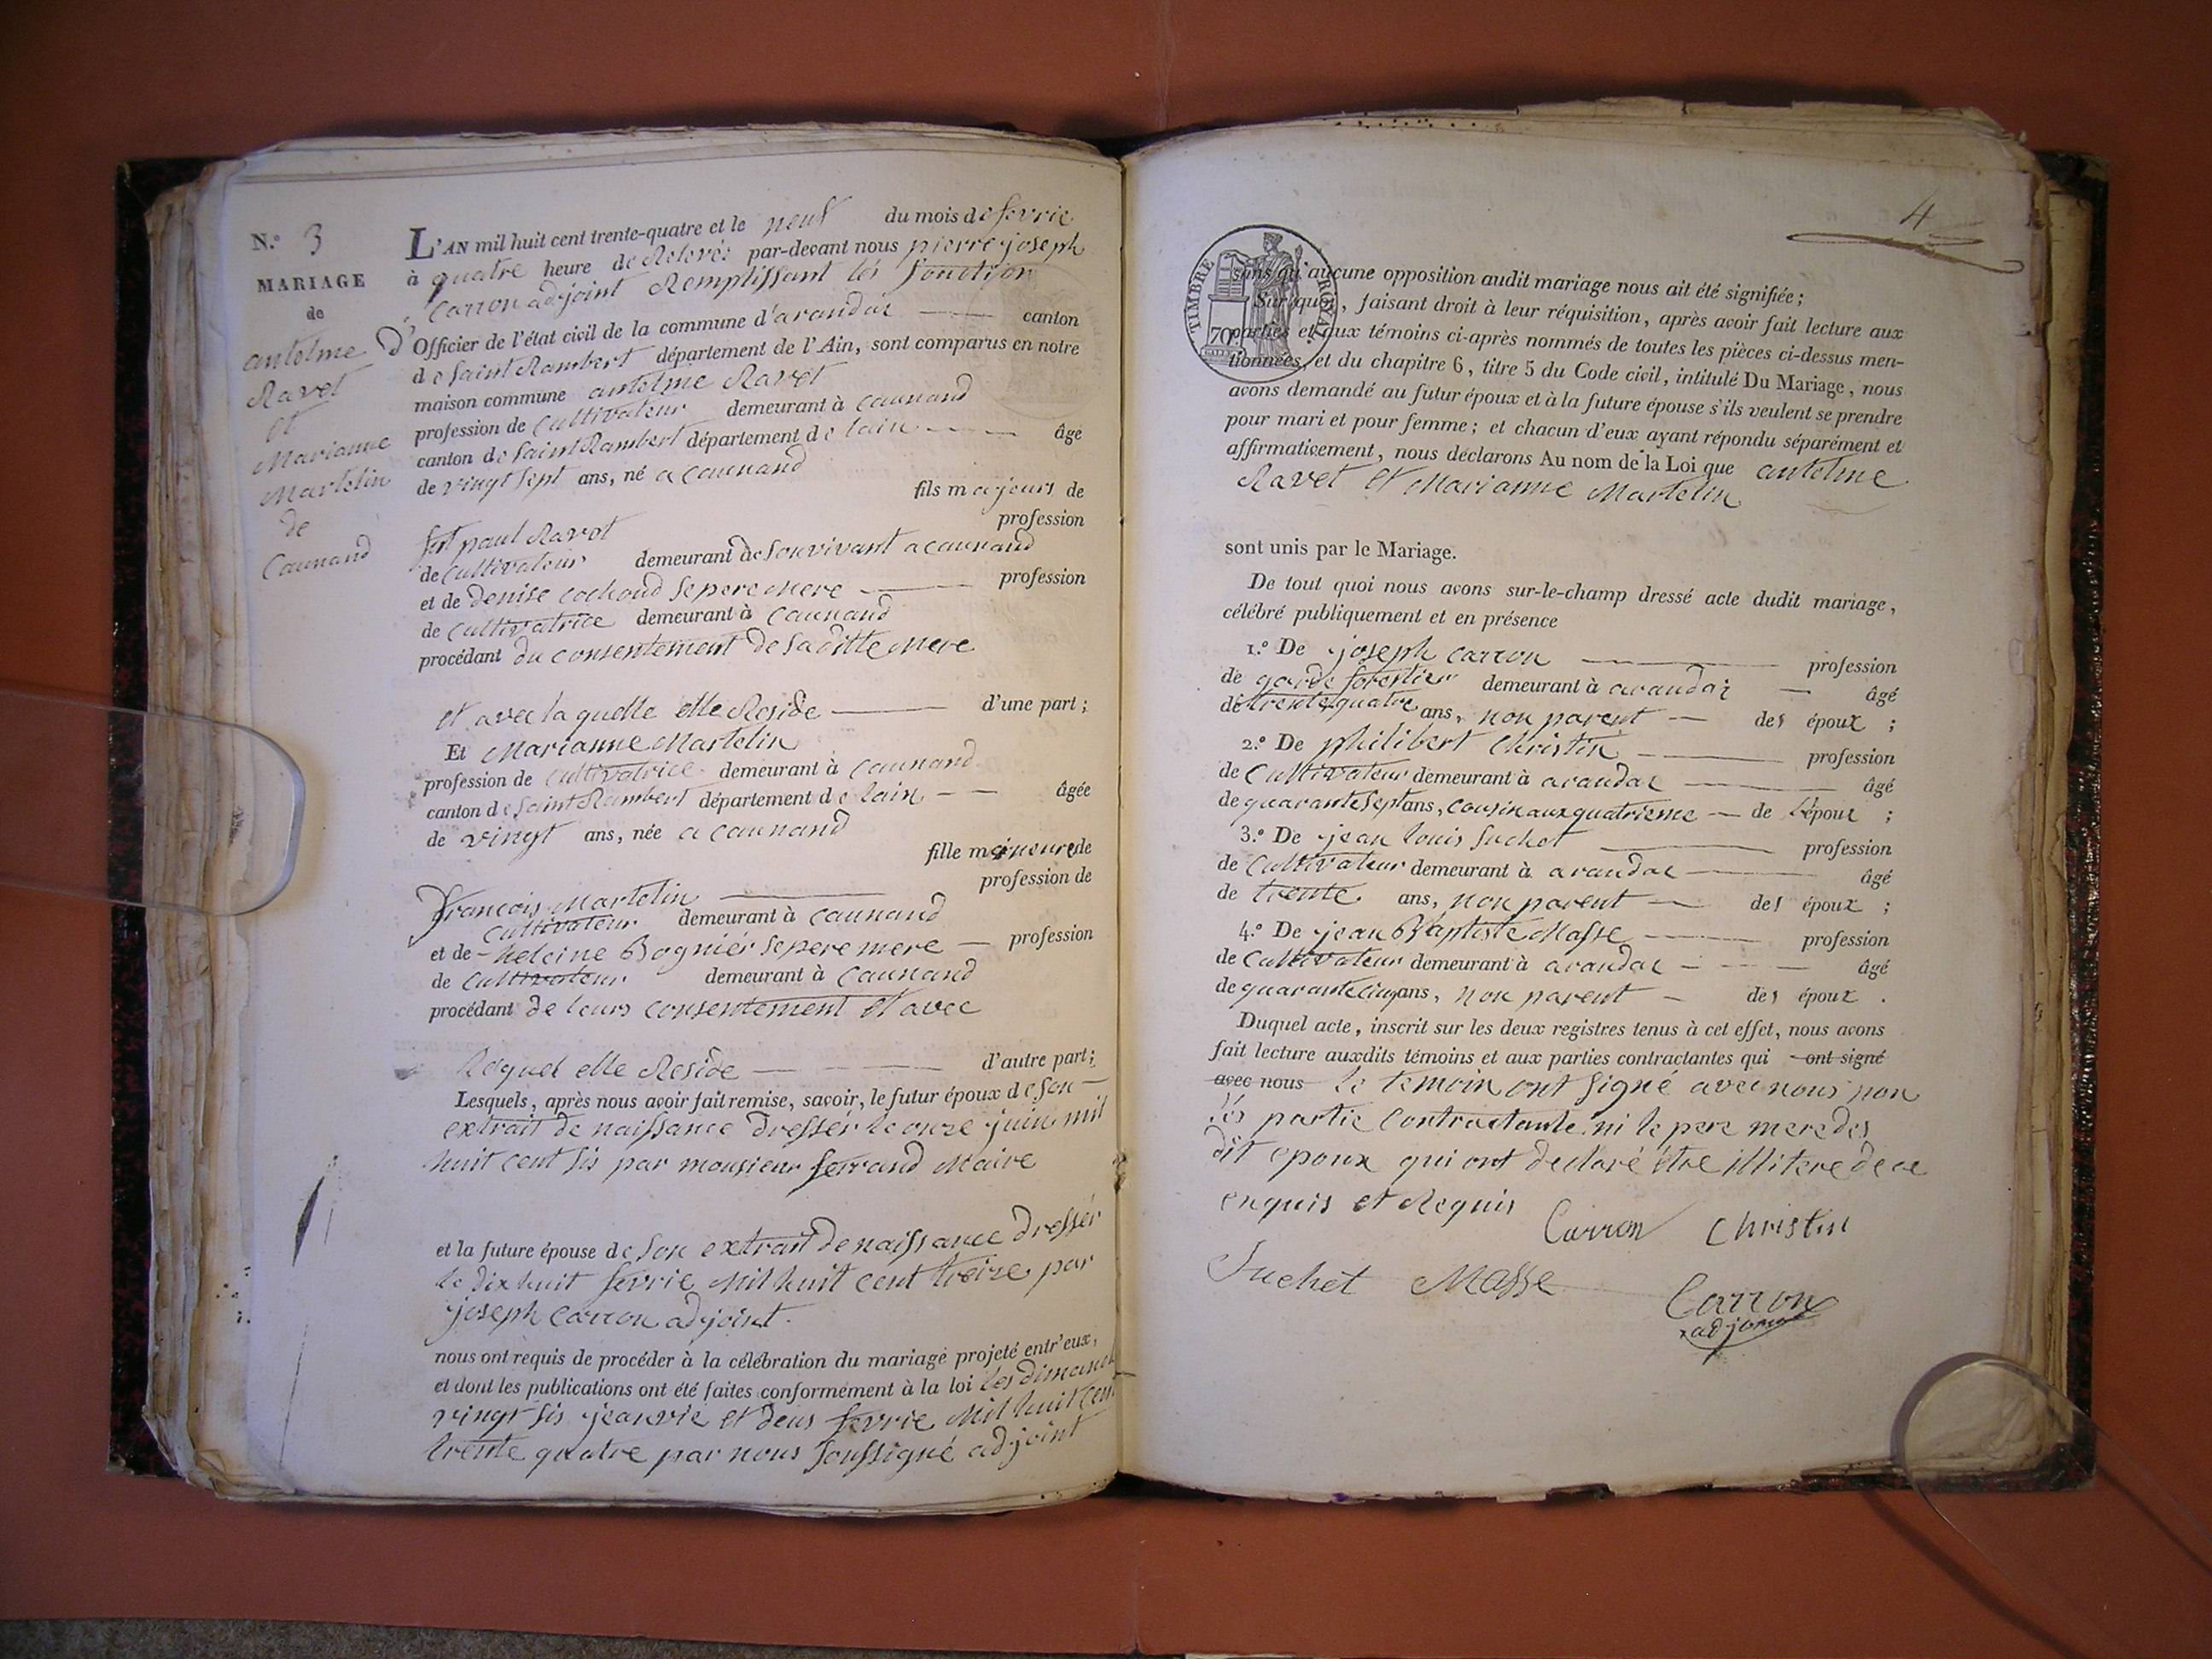 N.º 3
MARIAGE
de
antelme
Ravet
et
Marianne
Martelin
de
Caunand
L'AN mil huit cent trente-quatre et le neuf du mois de fevrie
à quatre heure de Relevée par-devant nous pierre joseph
Carron adjoint Remplissant lés fonction
D'Officier de l'état civil de la commune d'arandaz canton
de saint Rambert département de l'Ain, sont comparus en notre
maison commune antelme Ravet
profession de Cultivateur demeurant à Caunand
canton de saint Rambert département de lain âgé
de vingt sept ans, né a Caunand
fils majeurs de
fut paul Ravet profession
de Cultivateur demeurant de son vivant a caunand
et de denise cochoud se pere mere profession
de Cultivatrice demeurant à Caunand
procédant du consentement de saditte mere
et avec la quelle elle Reside d'une part ;
Et Marianne Martelin
profession de Cultivatrice demeurant à Caunand
canton de saint Rambert département de lain âgée
de vingt ans, née a Caunand
fille mineure de
francois Martelin profession de
cultivateur demeurant à Caunand
et de heleine Bognier se pere mere profession
de Cultivateur demeurant à Caunand
procédant de leurs consentement et avec
lequel elle Reside d'autre part ;
Lesquels, après nous avoir fait remise, savoir, le futur époux de son
extrait de naissance dressér le onze juin mil
huit cent sis par monsieur ferrand Maire
et la future épouse de son extrait de naissance dressér
le dix huit fevrie mil huit cent treize par
joseph carron adjoint.
nous ont requis de procéder à la célébration du mariage projeté entr'eux,
et dont les publications ont été faites conformément à la loi les dimanch
vingt sis jeanvie et deus fevrie mil huit cent
trente quatre par nous soussigné adjoint
4
TIMBRE ROYAL
70
sans qu'aucune opposition audit mariage nous ait été signifiée ;
Sur quoi, faisant droit à leur réquisition, après avoir fait lecture aux
parties et aux témoins ci-après nommés de toutes les pièces ci-dessus men-
tionnées, et du chapitre 6, titre 5 du Code civil, intitulé Du Mariage, nous
avons demandé au futur époux et à la future épouse s'ils veulent se prendre
pour mari et pour femme ; et chacun d'eux ayant répondu séparément et
affirmativement, nous déclarons Au nom de la Loi que antelme
Ravet et Marianne Martelin
sont unis par le Mariage.
De tout quoi nous avons sur-le-champ dressé acte dudit mariage,
célébré publiquement et en présence
1.º De joseph carron profession
de garde forestier demeurant à arandaz âgé
de trente quatre ans, non parent des époux ;
2.º De philibert Christin profession
de Cultivateur demeurant à arandaz âgé
de quarante sept ans, cousin aux quatrieme de l'époux ;
3.º De jean louis suchet profession
de Cultivateur demeurant à arandaz âgé
de trente ans, non parent des époux ;
4.º De jean Baptiste Masse profession
de Cultivateur demeurant à arandaz âgé
de quarante cinq ans, non parent des époux .
Duquel acte, inscrit sur les deux registres tenus à cet effet, nous avons
fait lecture auxdits témoins et aux parties contractantes qui ont signé
avec nous le temoin ont signé avec nous non
lés partie Contractante ni le pere mere des
dit epoux qui ont declaré être illitere de ce
enquis et Requis
Carron Christin
Suchet Masse
Carron
adjoint